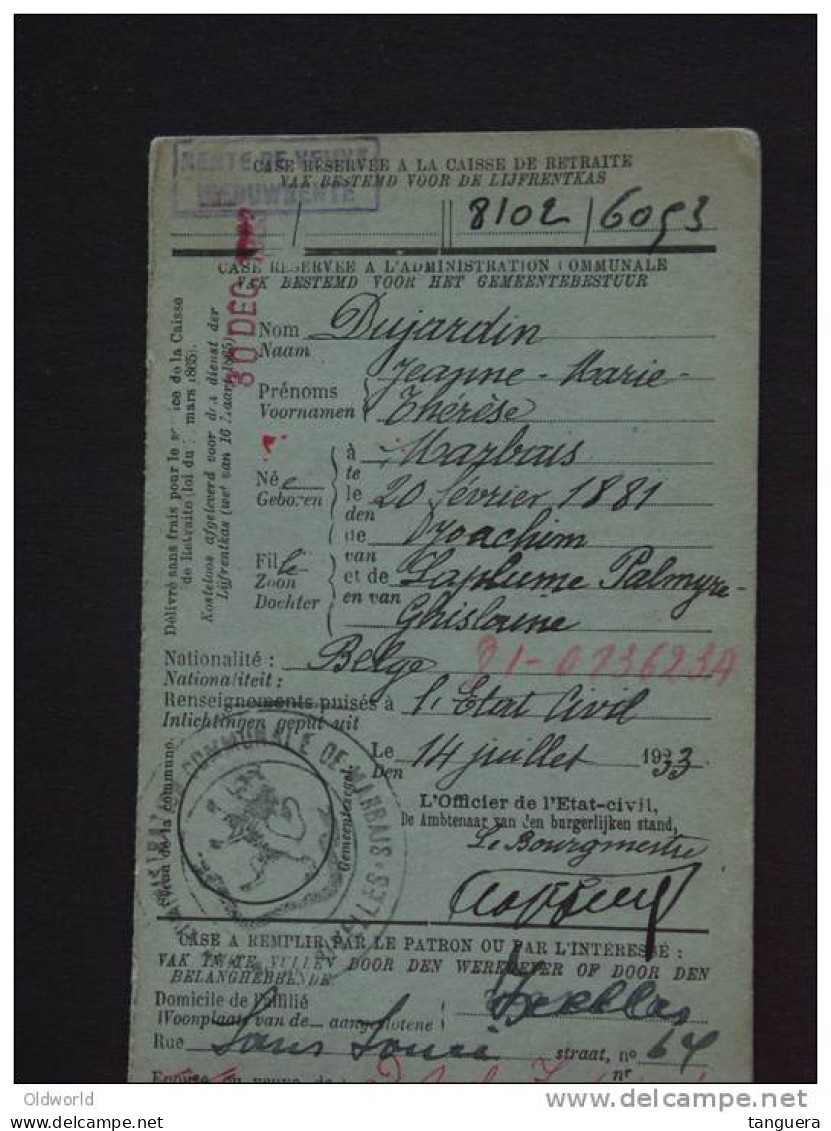 RENTE DE VEUVE
WEDUWRENTE
CASE RESERVEE A LA CAISSE DE RETRAITE
VAK BESTEMD VOOR DE LIJFRENTKAS
8102 / 6053
30 DEC.
CASE RESERVEE A L'ADMINISTRATION COMMUNALE
VAK BESTEMD VOOR HET GEMEENTEBESTUUR
Délivré sans frais pour le service de la Caisse
de Retraite (loi du mars 1865).
Kosteloos afgeleverd voor den dienst der
Lijfrentkas (wet van 16 Maart 1865)
Nom Dujardin
Naam
Prénoms Jeanne-Marie-
Voornamen Thérèse
à Marbais
te
Née le 20 février 1881
Geboren den
de Joachim
Fille van
Zoon et de Laplume Palmyre-
Dochter en van Ghislaine
Nationalité : Belge
Nationaliteit :
Renseignements puisés à l'Etat Civil
Inlichtingen geput uit
Le 14 juillet 1933
Den
COMMUNALE DE MARBAIS
Sceau de la commune.
Gemeentezegel
L'Officier de l'Etat-civil,
De Ambtenaar van den burgerlijken stand,
Le Bourgmestre
CASE A REMPLIR PAR LE PATRON OU PAR L'INTÉRESSÉ :
VAK IN TE VULLEN DOOR DEN WERKGEVER OF DOOR DEN
BELANGHEBBENDE
Domicile de l'affilié
Woonplaats van de aangeslotene
Rue Sans Souci straat, no 64
nr
Epouse ou veuve de
Oldworld
www.delcampe.net
tanguera